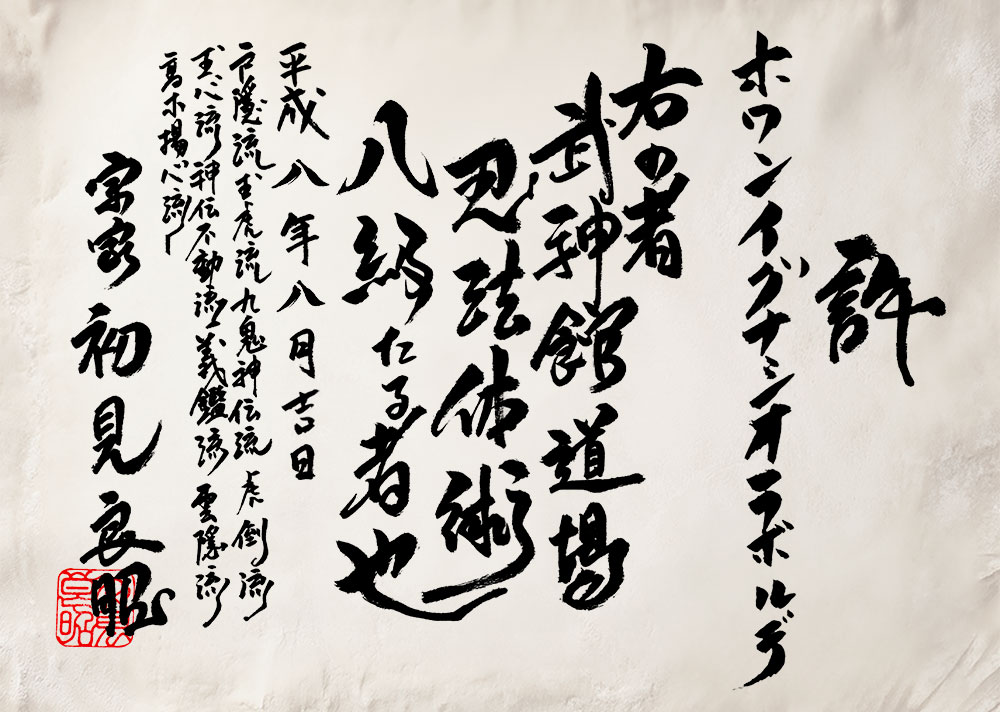 許
ホワンイグナシオラボルデ
右の者
武神館道場
忍法体術
八級たる者也
平成八年八月吉日
戸隠流玉虎流九鬼神伝流虎倒流
玉心流神伝不動流義鑑流雲隠流
高木揚心流
宗家初見良昭